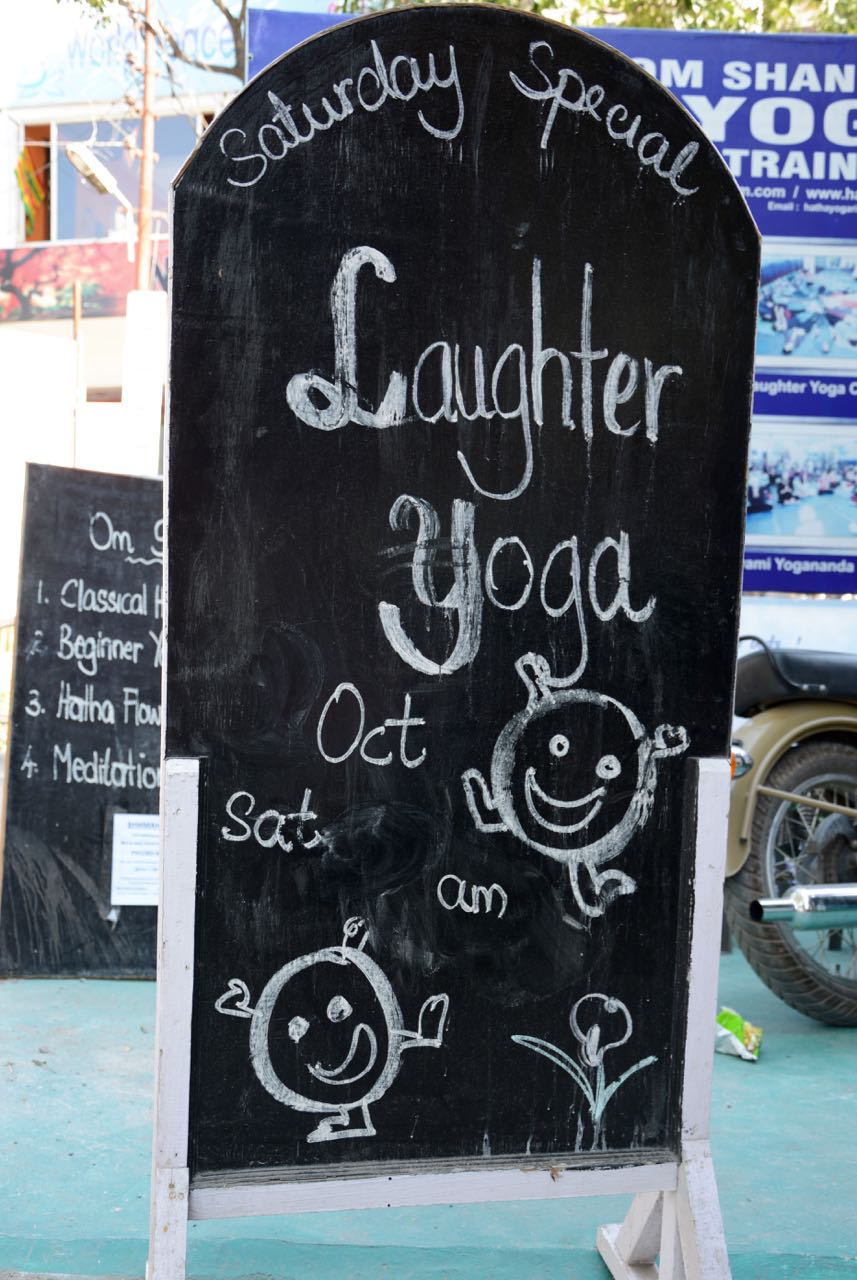 Saturday Special
Laughter
Yoga
Oct
Sat
am
Om
1. Classical
2. Beginner
3. Hatha Flow
4. Meditation
OM SHAN
YOG
TRAIN
m.com / www.ha
Email : hathayogan
aughter Yoga C
ami Yogananda
World Peace